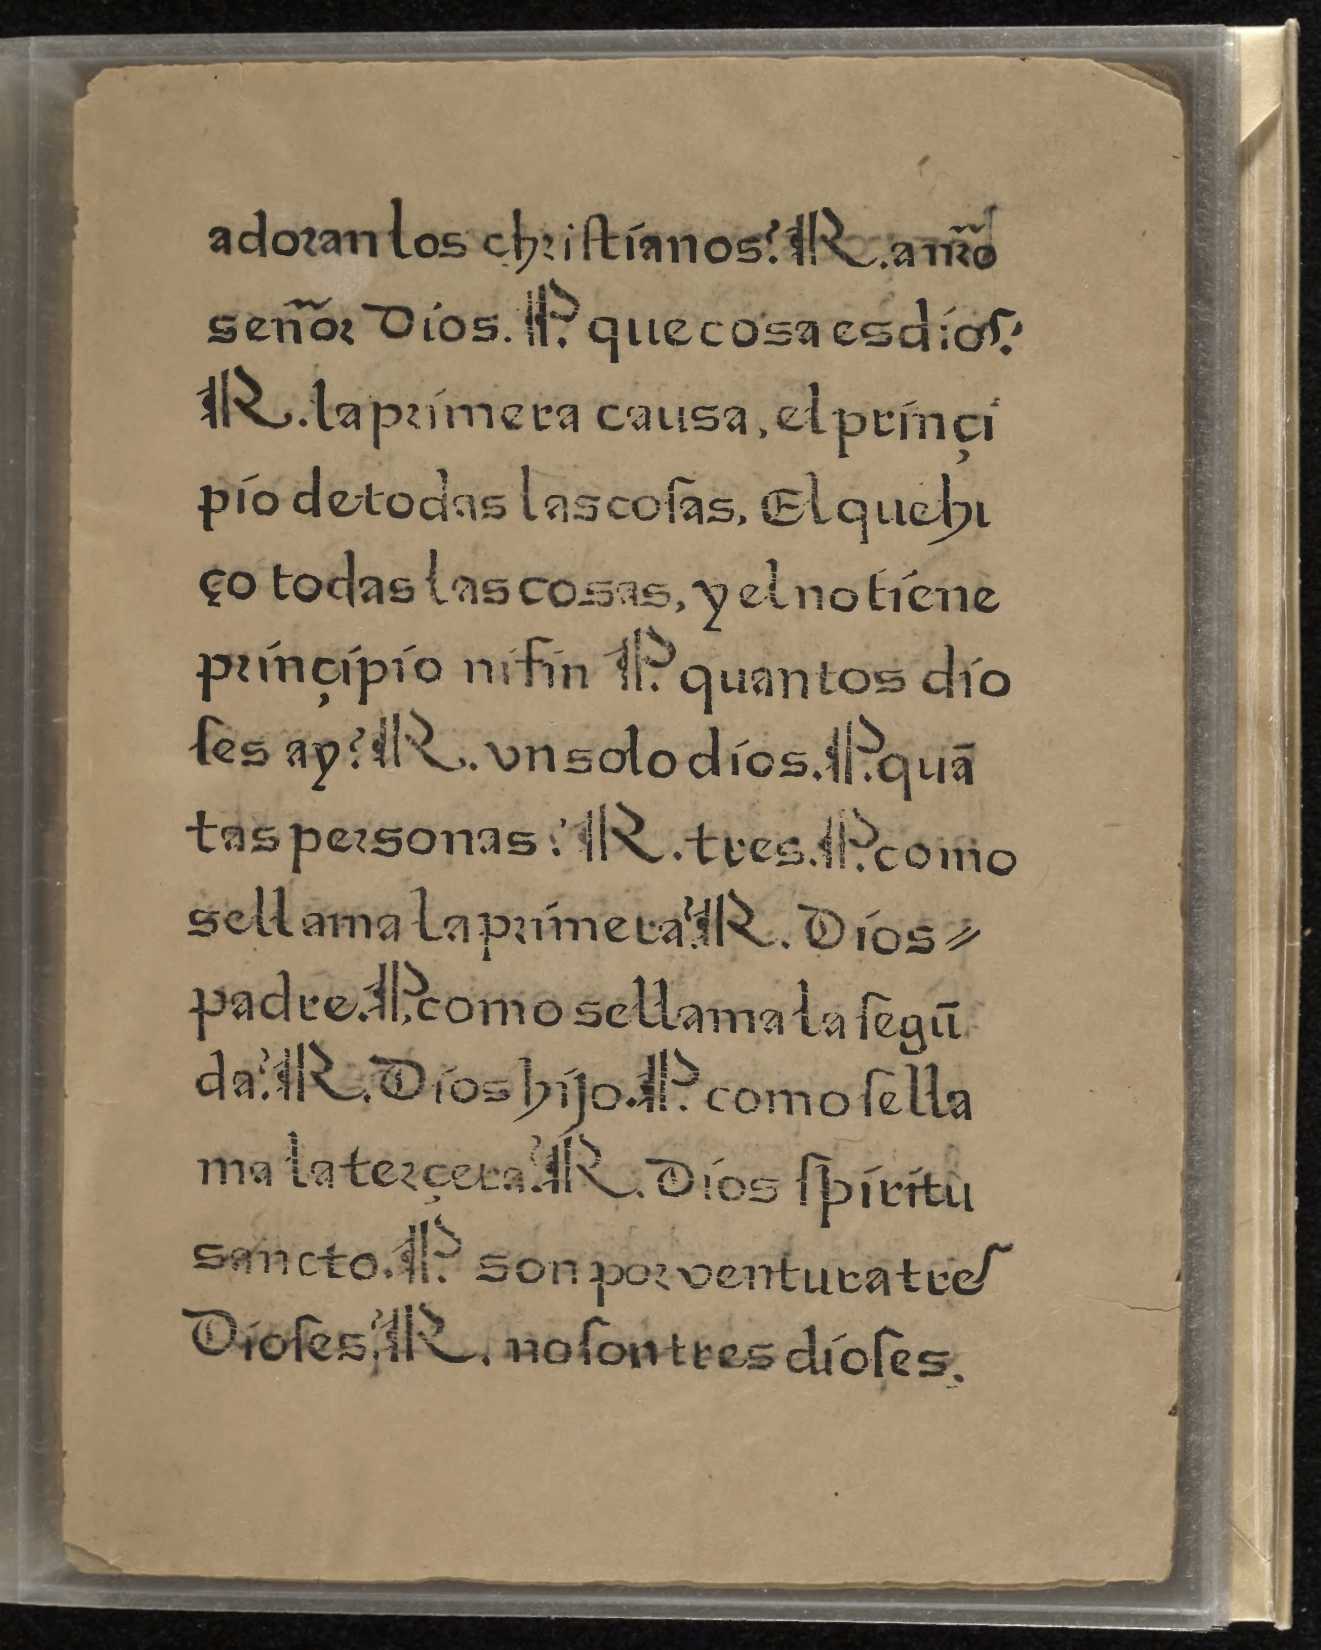 adoran los christianos? R. a nr̃o
señor Dios. P. que cosa es dios?
R. la primera causa, el prinçi
pio de todas las cosas, El que hi
ço todas las cosas, y el no tiene
prinçipio ni fin P. quantos dio
ses ay? R. vn solo dios. P. quā
tas personas? R. tres. P. como
se llama la primera? R. Dios =
padre. P. como se llama la segū
da? R. Dios hijo. P. como se lla
ma la terçera? R. Dios spiritu
sancto. P. son por ventura tres
Dioses? R. no son tres dioses.